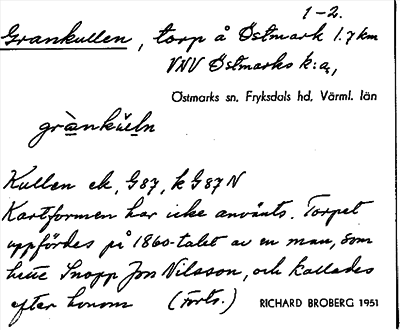 1-2.
Grankullen, torp å Östmark 1.7 km
VNV Östmarks k:a,
Östmarks sn, Fryksdals hd, Värml. län
grànkúẹln
Kullen ek, G87, k G87 N
Kartformen har icke använts. Torpet
uppfördes på 1860-talet av en man, som
hette Snopp Jon Nilsson, och kallades
efter honom (Forts.) RICHARD BROBERG 1951